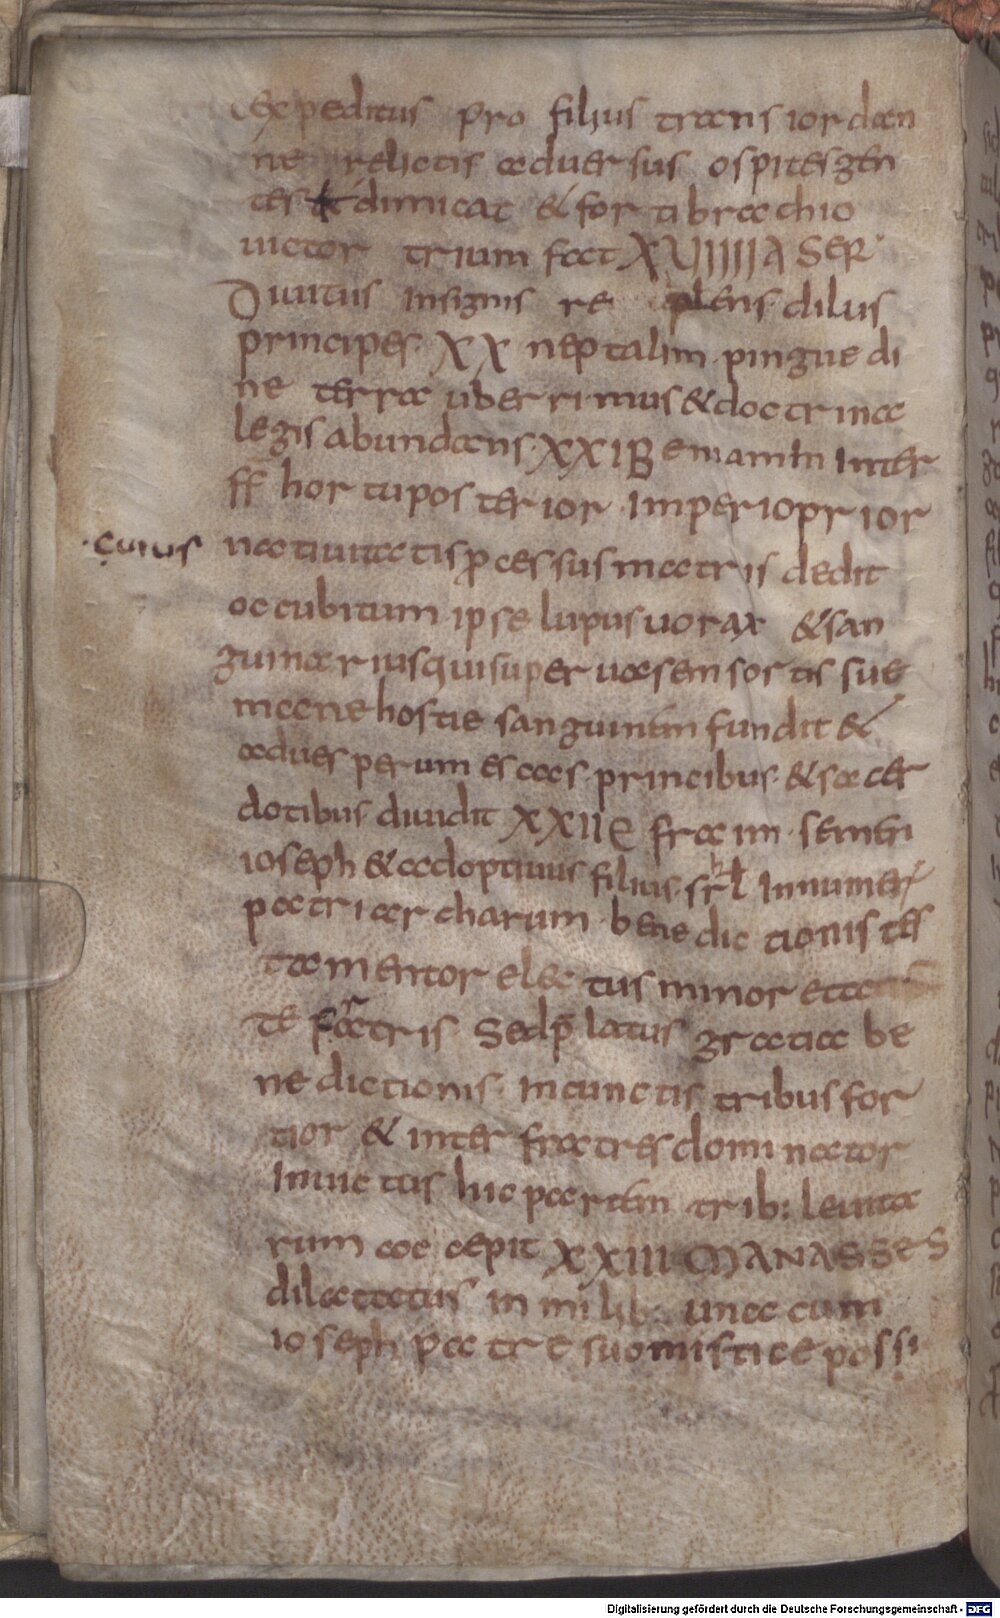 expeditus pro filiis trans iordan
ne relictis aduersus ospites gen
tes dimicat & forti brachio
uictor trium fat XUIIIII ASER
Diuitus insignis re plens dilus
principes XX neptalim pingue di
ne terrae uberrimus & doctrinae
legis abundans XXI Beniamin inter
ff hortu posterior imperio prior
·cuius natiuitatis p̄cessus matris dedit
occubitum ipse lupus uorax & san
guinarius qui super uasem sostis sue
mane hostie sanguinem fundit &
aduesperum escas principus & sacer
dotibus diuidit XXII efraim semen
ioseph & adoptiuus filius srl in numer
patriarcharum benedictionis tes
tamentor electus minor etta
te fratris sed p̄latus gratia be
nedictionis in cunctis tribus for
tior & inter fratres dominator
inuictus hic partem trib: leuita
rum accepit XXIII MANASSES
dilattatus in milib: una cum
ioseph patre suo mistice possi
Digitalisierung gefördert durch die Deutsche Forschungsgemeinschaft - DFG